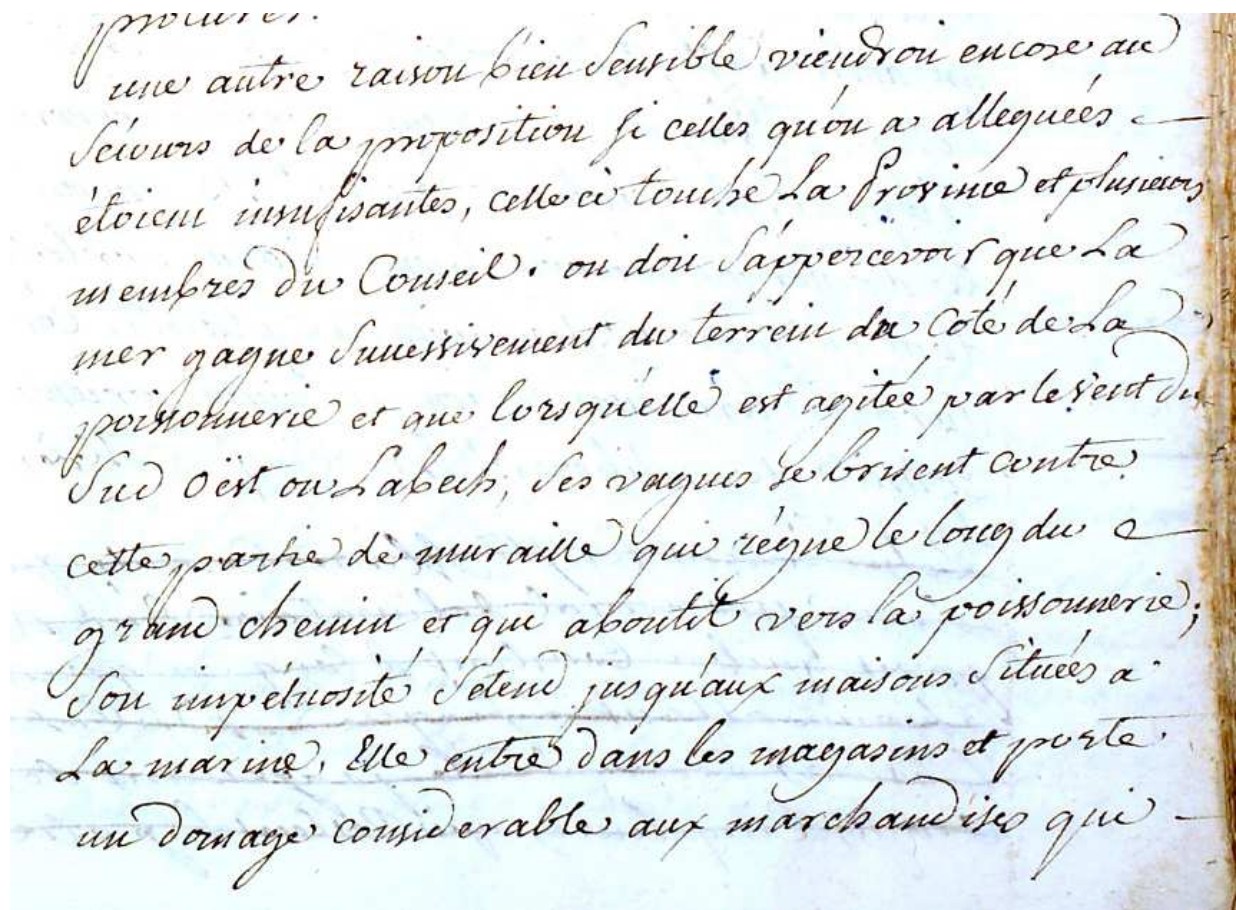 procurer.
une autre raison bien sensible viendroit encore au
sécours de la proposition si celles qu'on a alleguées
étoient insufisantes, celle ci touche La Province et plusieurs
membres du Conseil. on doit s'appercevoir que La
mer gagne successivement du terrein du Coté de La
poissonnerie et que lorsqu'elle est agitée par le vent du
Sud Oëst ou Labech, ses vagues se brisent contre
cette partie de muraille qui régne le long du
grand chemin et qui aboutit vers la poissonnerie;
Son impétuosité s'étend jusqu'aux maisons situées a
La marine, Elle entre dans les magasins et porte
un domage considerable aux marchandises qui